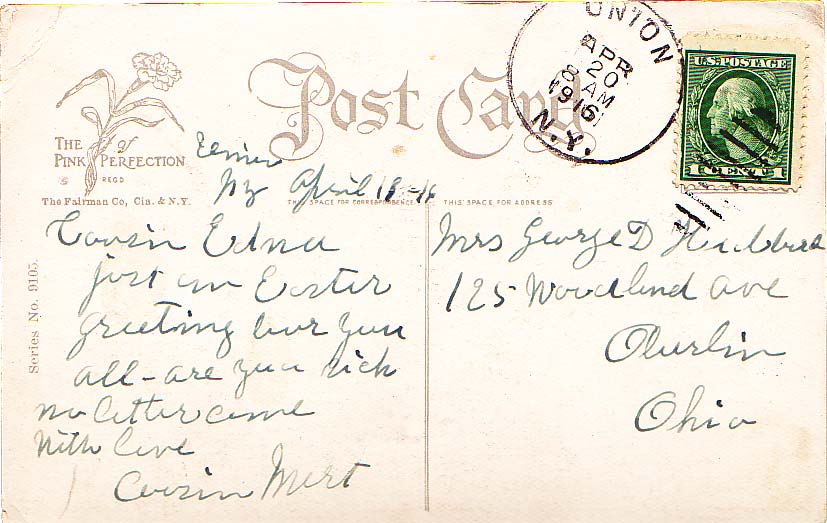 THE of
PINK PERFECTION
REGD
The Fairman Co, Cin. & N.Y.
Series No. 9105.
Post Card
UNION
APR
20
8 AM
1916
N.Y.
U.S. POSTAGE
1 CENT 1
Ny April 18-16
THIS SPACE FOR CORRESPONDENCE
THIS SPACE FOR ADDRESS
Cousin Edna
just an Easter
greeting for you
all - are you sick
no letter come
With love
Cousin Mert
Mrs George D Hubbard
125 Woodland Ave
Oberlin
Ohio